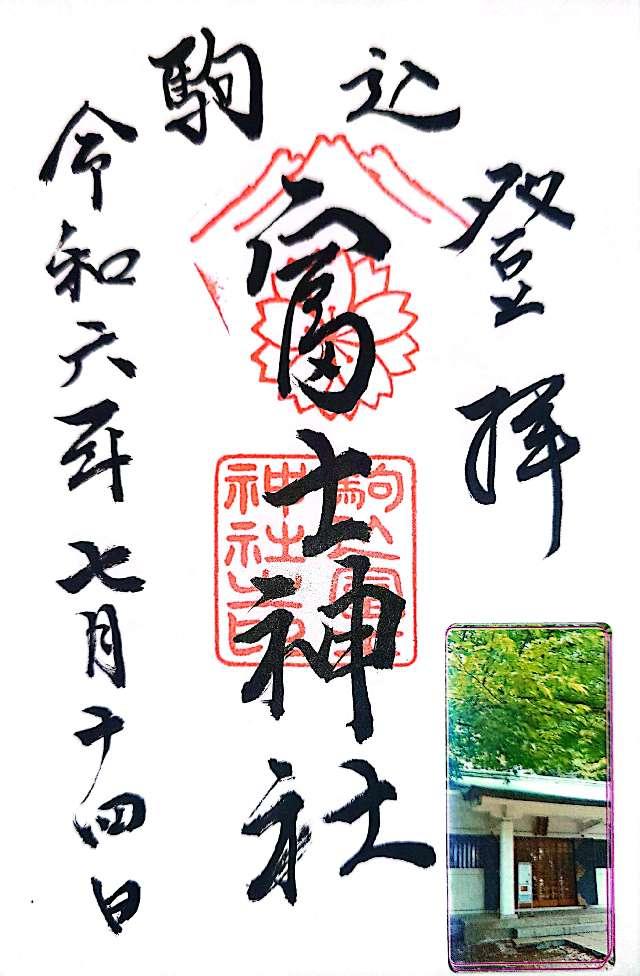 登拝
駒込
富士神社
令和六年七月十四日
駒込富士
神社之印